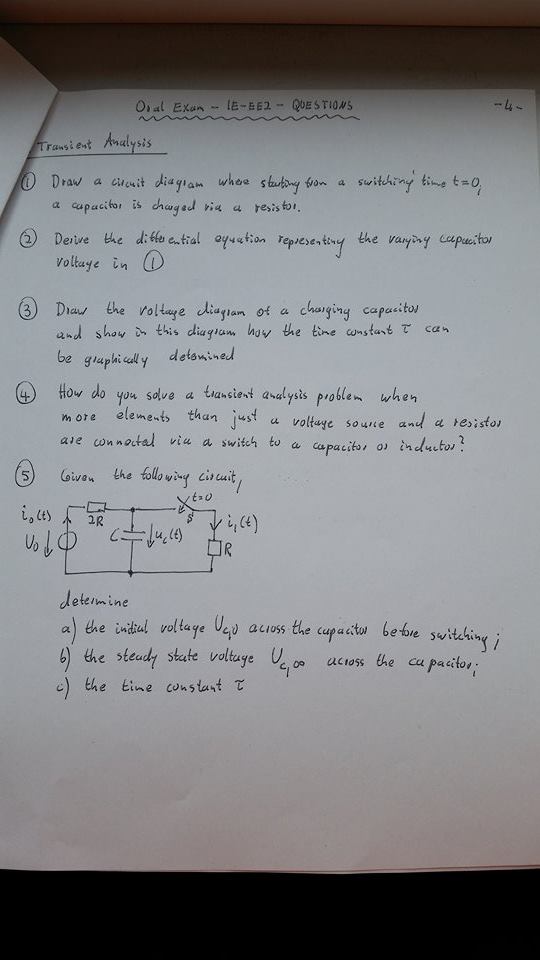 Oral Exam - IE-EE2 - QUESTIONS
-4-
Transient Analysis
① Draw a circuit diagram where starting from a switching time t=0,
a capacitor is charged via a resistor.
② Derive the differential equation representing the varying capacitor
voltage in ①
③ Draw the voltage diagram of a charging capacitor
and show in this diagram how the time constant τ can
be graphically determined
④ How do you solve a transient analysis problem when
more elements than just a voltage source and a resistor
are connected via a switch to a capacitor or inductor?
⑤ Given the following circuit,
t=0
i₀(t)
2R
S
i₁(t)
U₀
C
u_c(t)
R
determine
a) the initial voltage U_c,0 across the capacitor before switching;
b) the steady state voltage U_c,∞ across the capacitor;
c) the time constant τ